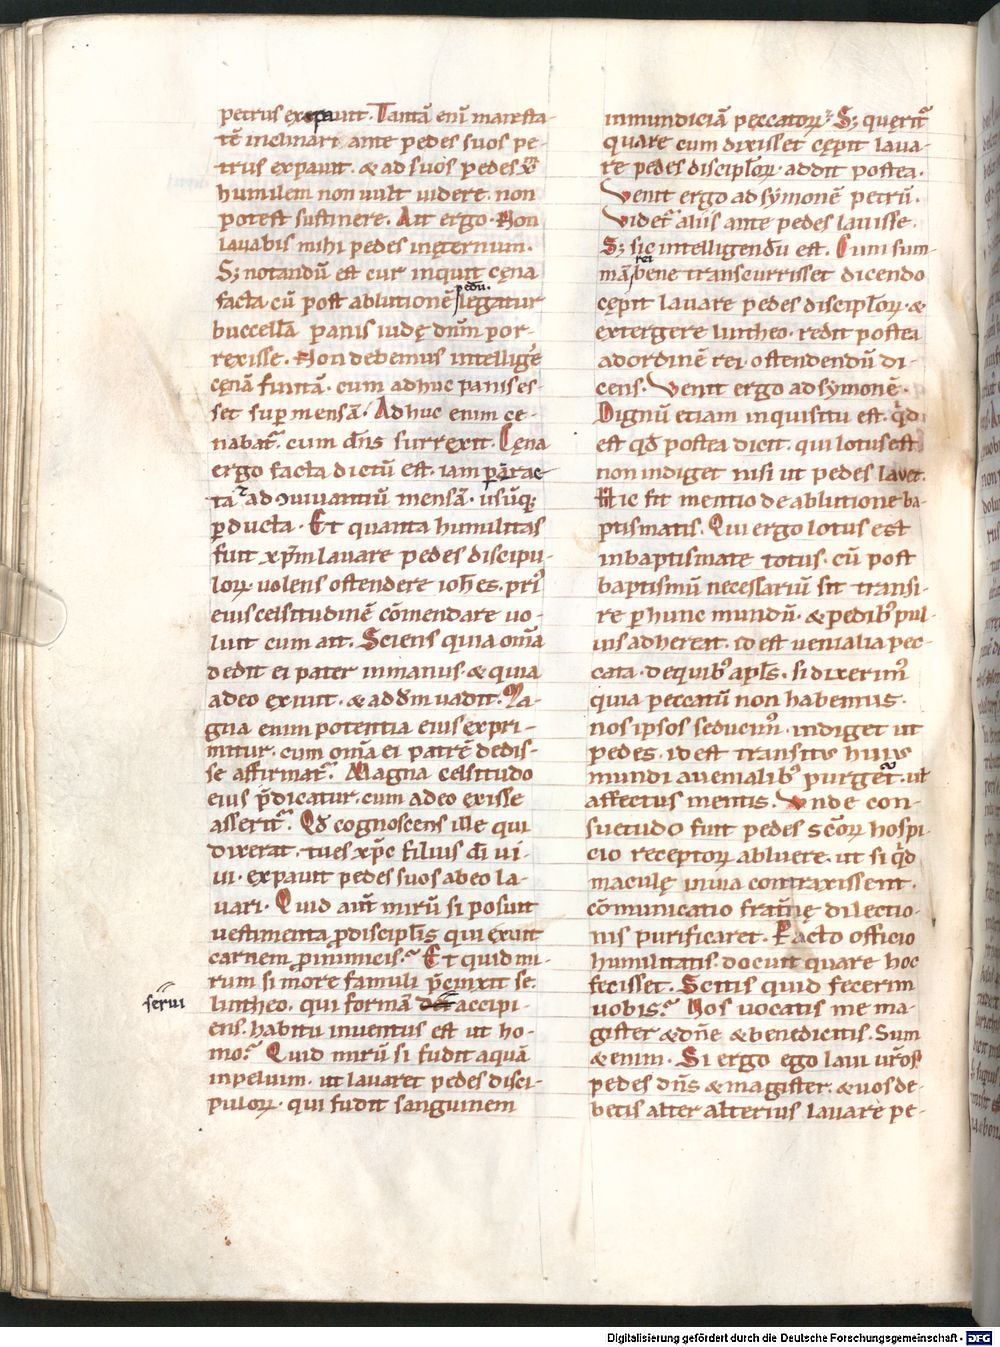 petrus expauit. Tantā eni᷑ maiesta-
tē inclinari ante pedes suos pe-
trus expauit. & ad suos pedes
humilem non uult uidere. non
potest sustinere. Ait ergo. Non
lauabis mihi pedes inęternum.
S; notandū est cur inquit cęna
facta. cū post ablutionē pedū. legatur
buccellā panis iudę dn̄m por-
rexisse. Non debemus intelligē
cęnā finitā. cum adhuc panis es-
set sup mensā. Adhuc enim ce-
nabat᷑. cum dn̄s surrexit. Cęna
ergo facta dictū est. iam parae
ta᷑ ad ꝯuiuantiū mensā. usūq;
ꝑducta. Et quanta humilitas
fuit xp̄m lauare pedes discipu-
loꝝ uolens ostendere ioh̄es. pri᷑
eius celsitudinē cōmendare uo-
luit cum ait. Sciens quia om̄a
dedit ei pater inmanus. & quia
adeo exiuit. & addm̄ uadit. Ma-
gna enim potentia eius expri-
mitur. cum om̄a ei patrē dedis-
se affirmat᷑. Magna celsitudo
eius p̄dicatur. cum adeo exisse
asserit᷑. Qd̄ cognoscens ille qui
dixerat. tu es xp̄c filius di̅ ui-
ui. expauit pedes suos abeo la-
uari. Quid aut̄ mirū si posuit
uestimenta ꝓdisciplīs qui exuit
carnem ꝓinimicis? Et quid mi-
rum si more famuli p̄cinxit se.
serui
lintheo. qui formā dei accipi-
ens. habitu inuentus est ut ho-
mo? Quid mirū si fudit aquā
inpeluim. ut lauaret pedes disci-
puloꝝ. qui fudit sanguinem
inmundiciā peccatoꝝ? S; querit᷑
quare cum dixisset cępit laua-
re pedes discipl̄oꝝ. addit postea.
Venit ergo ad symonē petrū.
Videt᷑ aliis ante pedes lauisse.
S; sic intelligendū est. Cum sum-
mā rei bene transcurrisset dicendo
cępit lauare pedes discipl̄oꝝ. &
extergere lintheo. redit postea
adordinē rei. ostendendū di-
cens. Venit ergo ad symonē.
Dignū etiam inquisitu est. qd̄
est qd̄ postea dicit. qui lotus est
non indiget nisi ut pedes lauet.
Hic fit mentio de ablutione ba-
ptismatis. Qui ergo lotus est
inbaptismate totus. cū post
baptismū necessariū sit transi-
re ꝑ hunc mundū. & pedib᷒ pul-
uis adhereat. id est uenialia pec-
cata. dequib᷒ apl̄s. si dixerim᷒
quia peccatū non habemus.
nos ipsos seducim᷒. indiget ut
pedes. id est transitus huius
mundi auenialib᷒ purget᷑. ut
affectus mentis. Unde con-
suetudo fuit pedes sc̄oꝝ hospi-
cio receptoꝝ abluere. ut si qd̄
maculę inuia contraxissent.
cōmunicatio frat᷑nę dilectio-
nis purificaret. Facto officio
humilitatis. docuit quare hoc
fecisset. Scitis quid fecerim
uobis? Uos uocatis me ma-
gister & dn̄e & benedicitis. Sum
& enim. Si ergo ego laui ur̄os
pedes dn̄s & magister. & uos de-
betis alter alterius lauare pe-
Digitalisierung gefördert durch die Deutsche Forschungsgemeinschaft - DFG